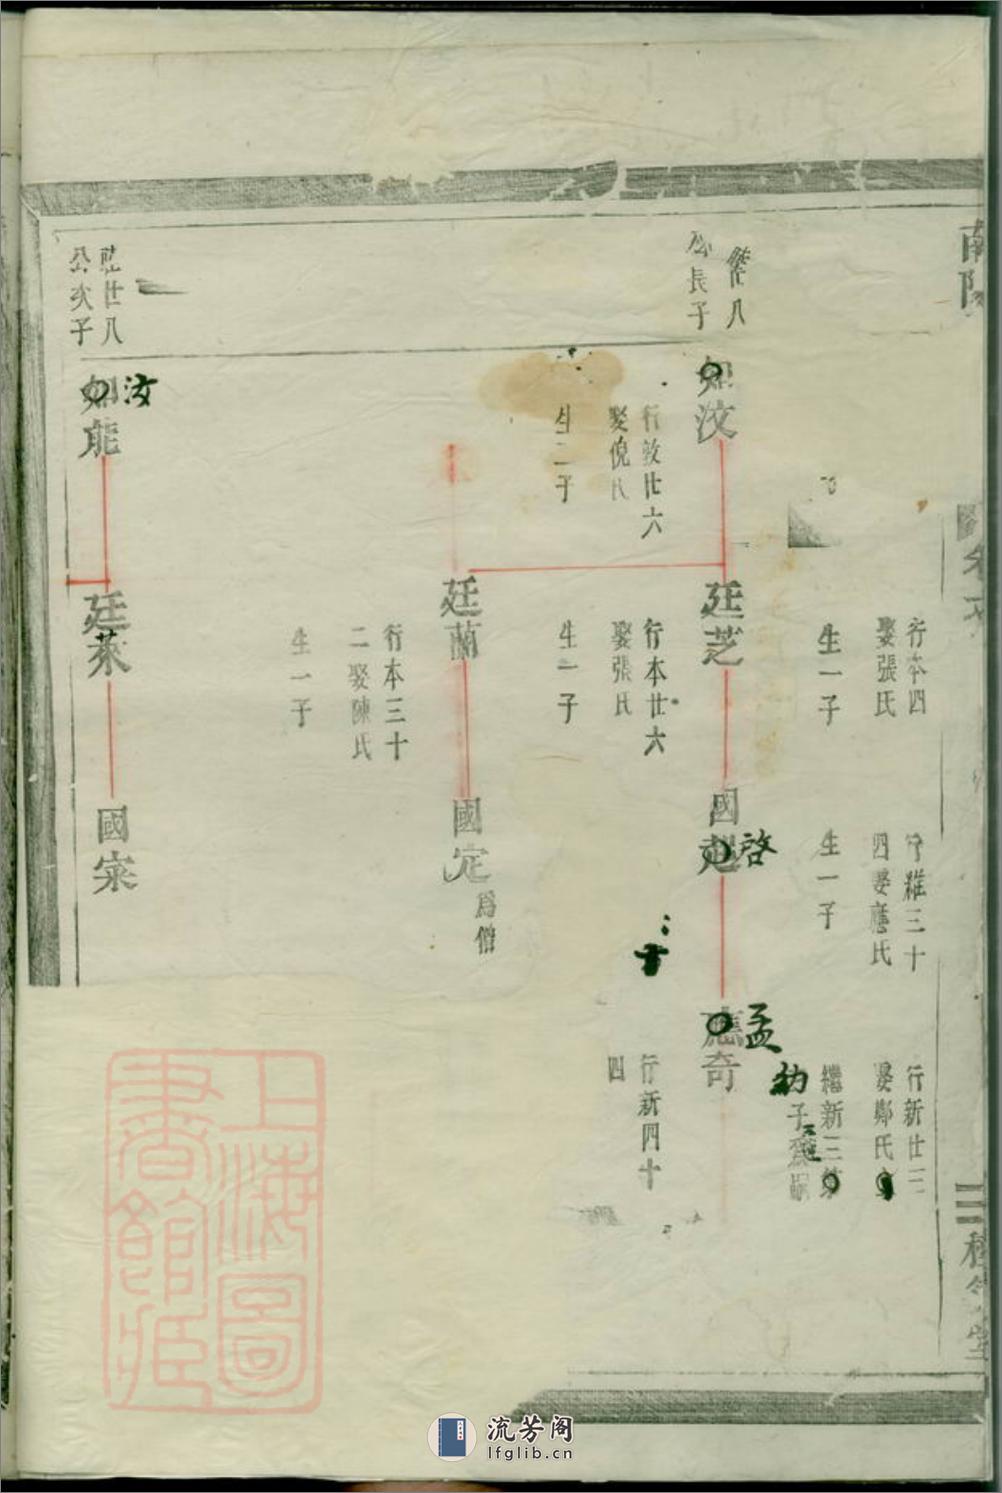 南陽
行本四
娶張氏
生一子
行雅三十
四娶應氏
生一子
行新廿三
娶鄭氏
繼新三
幼子
陸廿八
公長子
如汶
廷芝
國
啓
應奇
孟
行敦廿六
娶倪氏
生二子
行本廿六
娶張氏
生一子
行新四十
四
廷蘭
國定
為僧
行本三十
二娶陳氏
生一子
陸廿八
公次子
如能
汝
廷萊
國寀
上海圖
書館藏
流芳阁
lfglib.cn